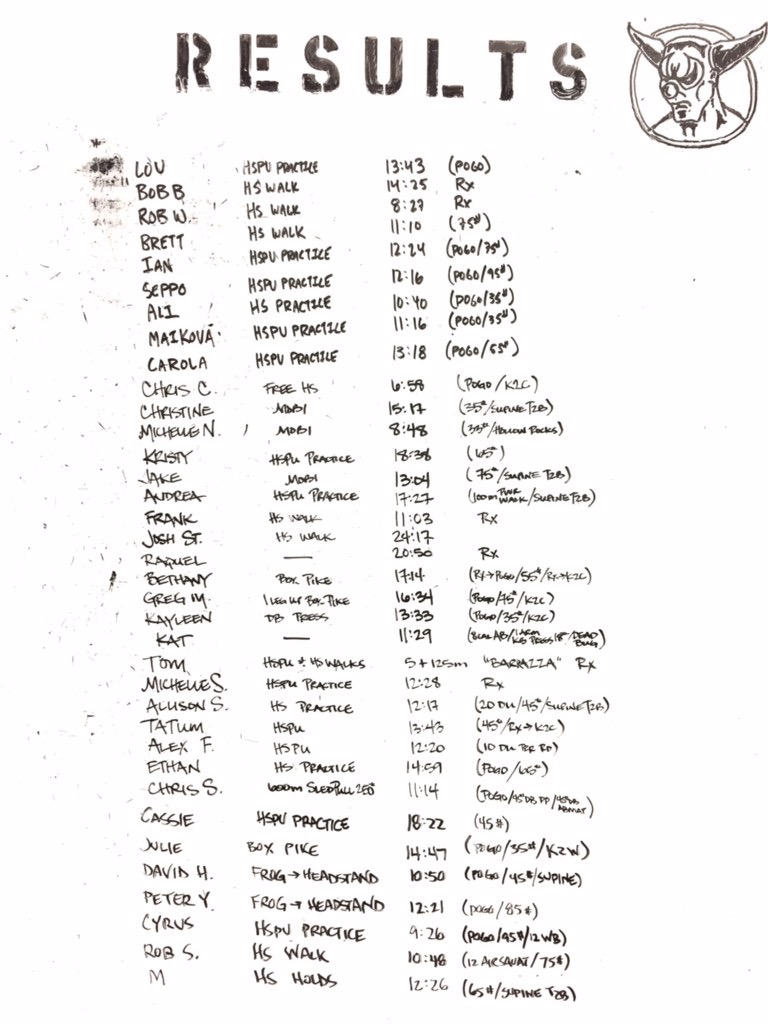 RESULTS
LOU HSPU PRACTICE 13:43 (POGO)
BOB B HS WALK 14:25 Rx
ROB W. HS WALK 8:27 Rx
BRETT HS WALK 11:10 (75#)
IAN HSPU PRACTICE 12:24 (POGO/75#)
SEPPO HSPU PRACTICE 12:16 (POGO/95#)
ALI HS PRACTICE 10:40 (POGO/35#)
MAIKOVA HSPU PRACTICE 11:16 (POGO/35#)
CAROLA HSPU PRACTICE 13:18 (POGO/55#)
CHRIS C. FREE HS 6:58 (POGO/K2C)
CHRISTINE MOBI 15:17 (35#/SUPINE T2B)
MICHELLE N. MOBI 8:48 (33#/HOLLOW ROCKS)
KRISTY HSPU PRACTICE 18:38 (65#)
JAKE MOBI 13:04 (75#/SUPINE T2B)
ANDREA HSPU PRACTICE 17:27 (100m PWR WALK/SUPINE T2B)
FRANK HS WALK 11:03 Rx
JOSH ST. HS WALK 24:17
RAQUEL — 20:50 Rx
BETHANY BOX PIKE 17:14 (Rx→POGO/55#/Rx→K2C)
GREG M. 1 LEG UP BOX PIKE 16:34 (POGO/75#/K2C)
KAYLEEN DB PRESS 13:33 (POGO/35#/K2C)
KAT — 11:29 (8CAL AB/1 ARM KB PRESS 18#/DEAD BUGS)
TOM HSPU & HS WALKS 5 + 125m "BARRAZZA" Rx
MICHELLE S. HSPU PRACTICE 12:28 Rx
ALLISON S. HS PRACTICE 12:17 (20 DU/45#/SUPINE T2B)
TATUM HSPU 13:43 (45#/Rx→K2C)
ALEX F. HSPU 12:20 (10 DU PER RD)
ETHAN HS PRACTICE 14:59 (POGO/65#)
CHRIS S. 600m SLED PULL 250# 11:14 (POGO/45#DB PP/45#DB ABMAT)
CASSIE HSPU PRACTICE 18:22 (45#)
JULIE BOX PIKE 14:47 (POGO/35#/K2W)
DAVID H. FROG→HEADSTAND 10:50 (POGO/45#/SUPINE)
PETER Y. FROG→HEADSTAND 12:21 (POGO/85#)
CYRUS HSPU PRACTICE 9:26 (POGO/95#/12 WB)
ROB S. HS WALK 10:48 (12 AIRSQUAT/75#)
M HS HOLDS 12:26 (65#/SUPINE T2B)